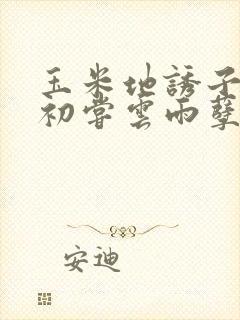 玉米地誘子
初嘗雲雨孽
安迪